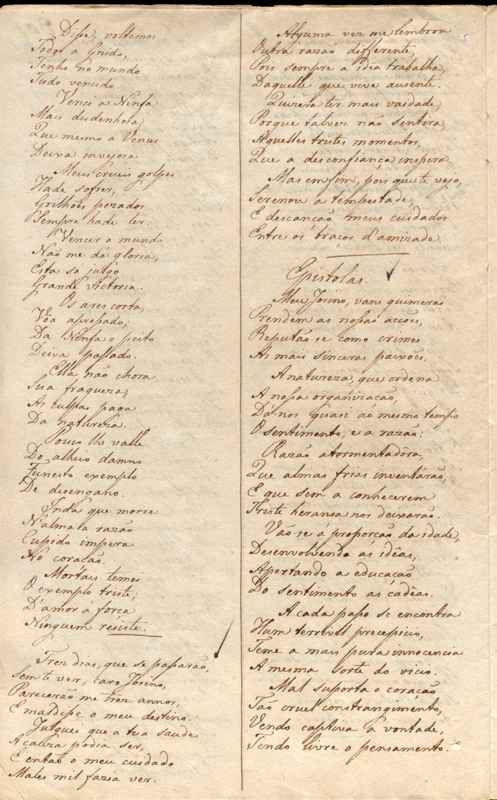 Disse, voltemos
Todos a Gnido,
Tenho no mundo
Tudo vencido.
Venci a Ninfa
Mais desdenhosa,
Que mesmo a Venus
Deixa invejosa.
Meus crueis golpes
Hade sofrer,
Grilhões pezados
Sempre hade ter.
Vencer o mundo
Não me dá gloria,
Esta só julgo
Grande victoria.
Os ares corta,
Vôa apressado,
Da Ninfa o peito
Deixa passado.
Ella não chora
Sua fraqueza,
As culpas paga
Da natureza.
Pouco lhe valle
Do alheio damno
Funesto exemplo
De desengano.
Inda que morre
N'alma la razão
Cupido impera
No coração.
Mortais temei
O exemplo triste,
D'amor a força
Ninguem resiste.
Tres dias, que se passarão,
Sem te ver, caro Jozino,
Parecerão me tres annos,
E maldisse o meu destino.
Julguei que a tua saude
A cauza podia ser,
E então o meu cuidado
Males mil fazia ver.
Alguma vez me lembrou
Outra razão differente,
Pois sempre a idea trabalha,
Daquelle que vive auzente.
Quizera ter mais vaidade,
Porque talvez não sentira,
Aquelles tristes momentos,
Que a desconfiança inspira.
Mas em fim, pois que te vejo,
Serenou a tempestade,
E descanção meus cuidados
Entre os braços d'amizade.
Epistolas.
Meu Jozino, vans quimeras
Prendem as nossas acções,
Reputão-se como crimes
As mais sinceras paixões.
A natureza, que ordena
A nossa organização,
Dá nos quasi ao mesmo tempo
O sentimento, e a razão:
Razão atormentadora,
Que almas frias inventárão,
E que sem a conhecerem
Triste herança nos deixarão.
Vão-se á proporção da idade,
Desenvolvendo as idêas,
Apertando a educação
Do sentimento as cadêas.
A cada passo se encontra
Hum terrivel precepicio,
Teme a mais pura innocencia
A mesma sorte do vicio.
Mal suporta o coração
Tão cruel constrangimento,
Vendo captiva a vontade,
Tendo livre o pensamento.